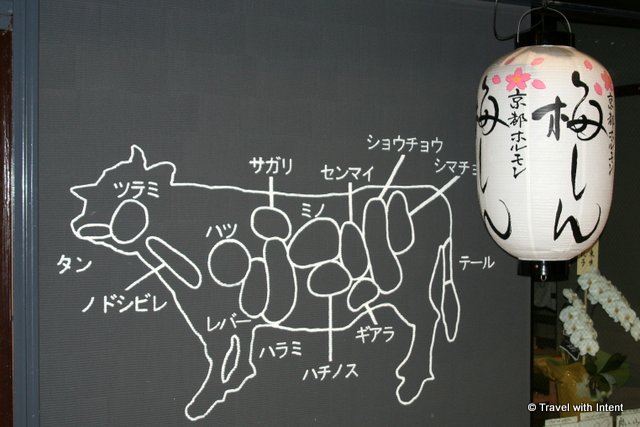 ショウチョウ
サガリ
センマイ
シマチョ
ツラミ
ミノ
ハツ
タン
テール
ノドシビレ
レバー
ギアラ
ハラミ
ハチノス
京都ホルモン
梅しん
京都ホルモン
梅しん
© Travel with Intent